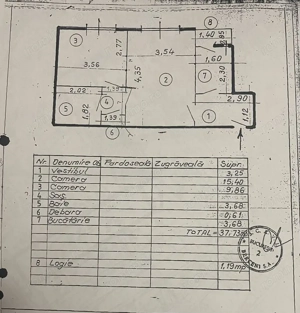 8
3
1,40
2,77
3,54
1,60
3,56
4,35
2
7
2,30
2,02
4
2,90
5
1,82
1,39
1
1,12
6
Nr. Denumire Pardoseală Zugrăveală Supr.
1 Vestibul 3,25
2 Camera 15,40
3 Camera 9,86
4 Sas
5 Baie 3,68
6 Debara 0,61
7 Bucătărie 3,68
TOTAL = 37,73
8 Logie 1,19 mp
2